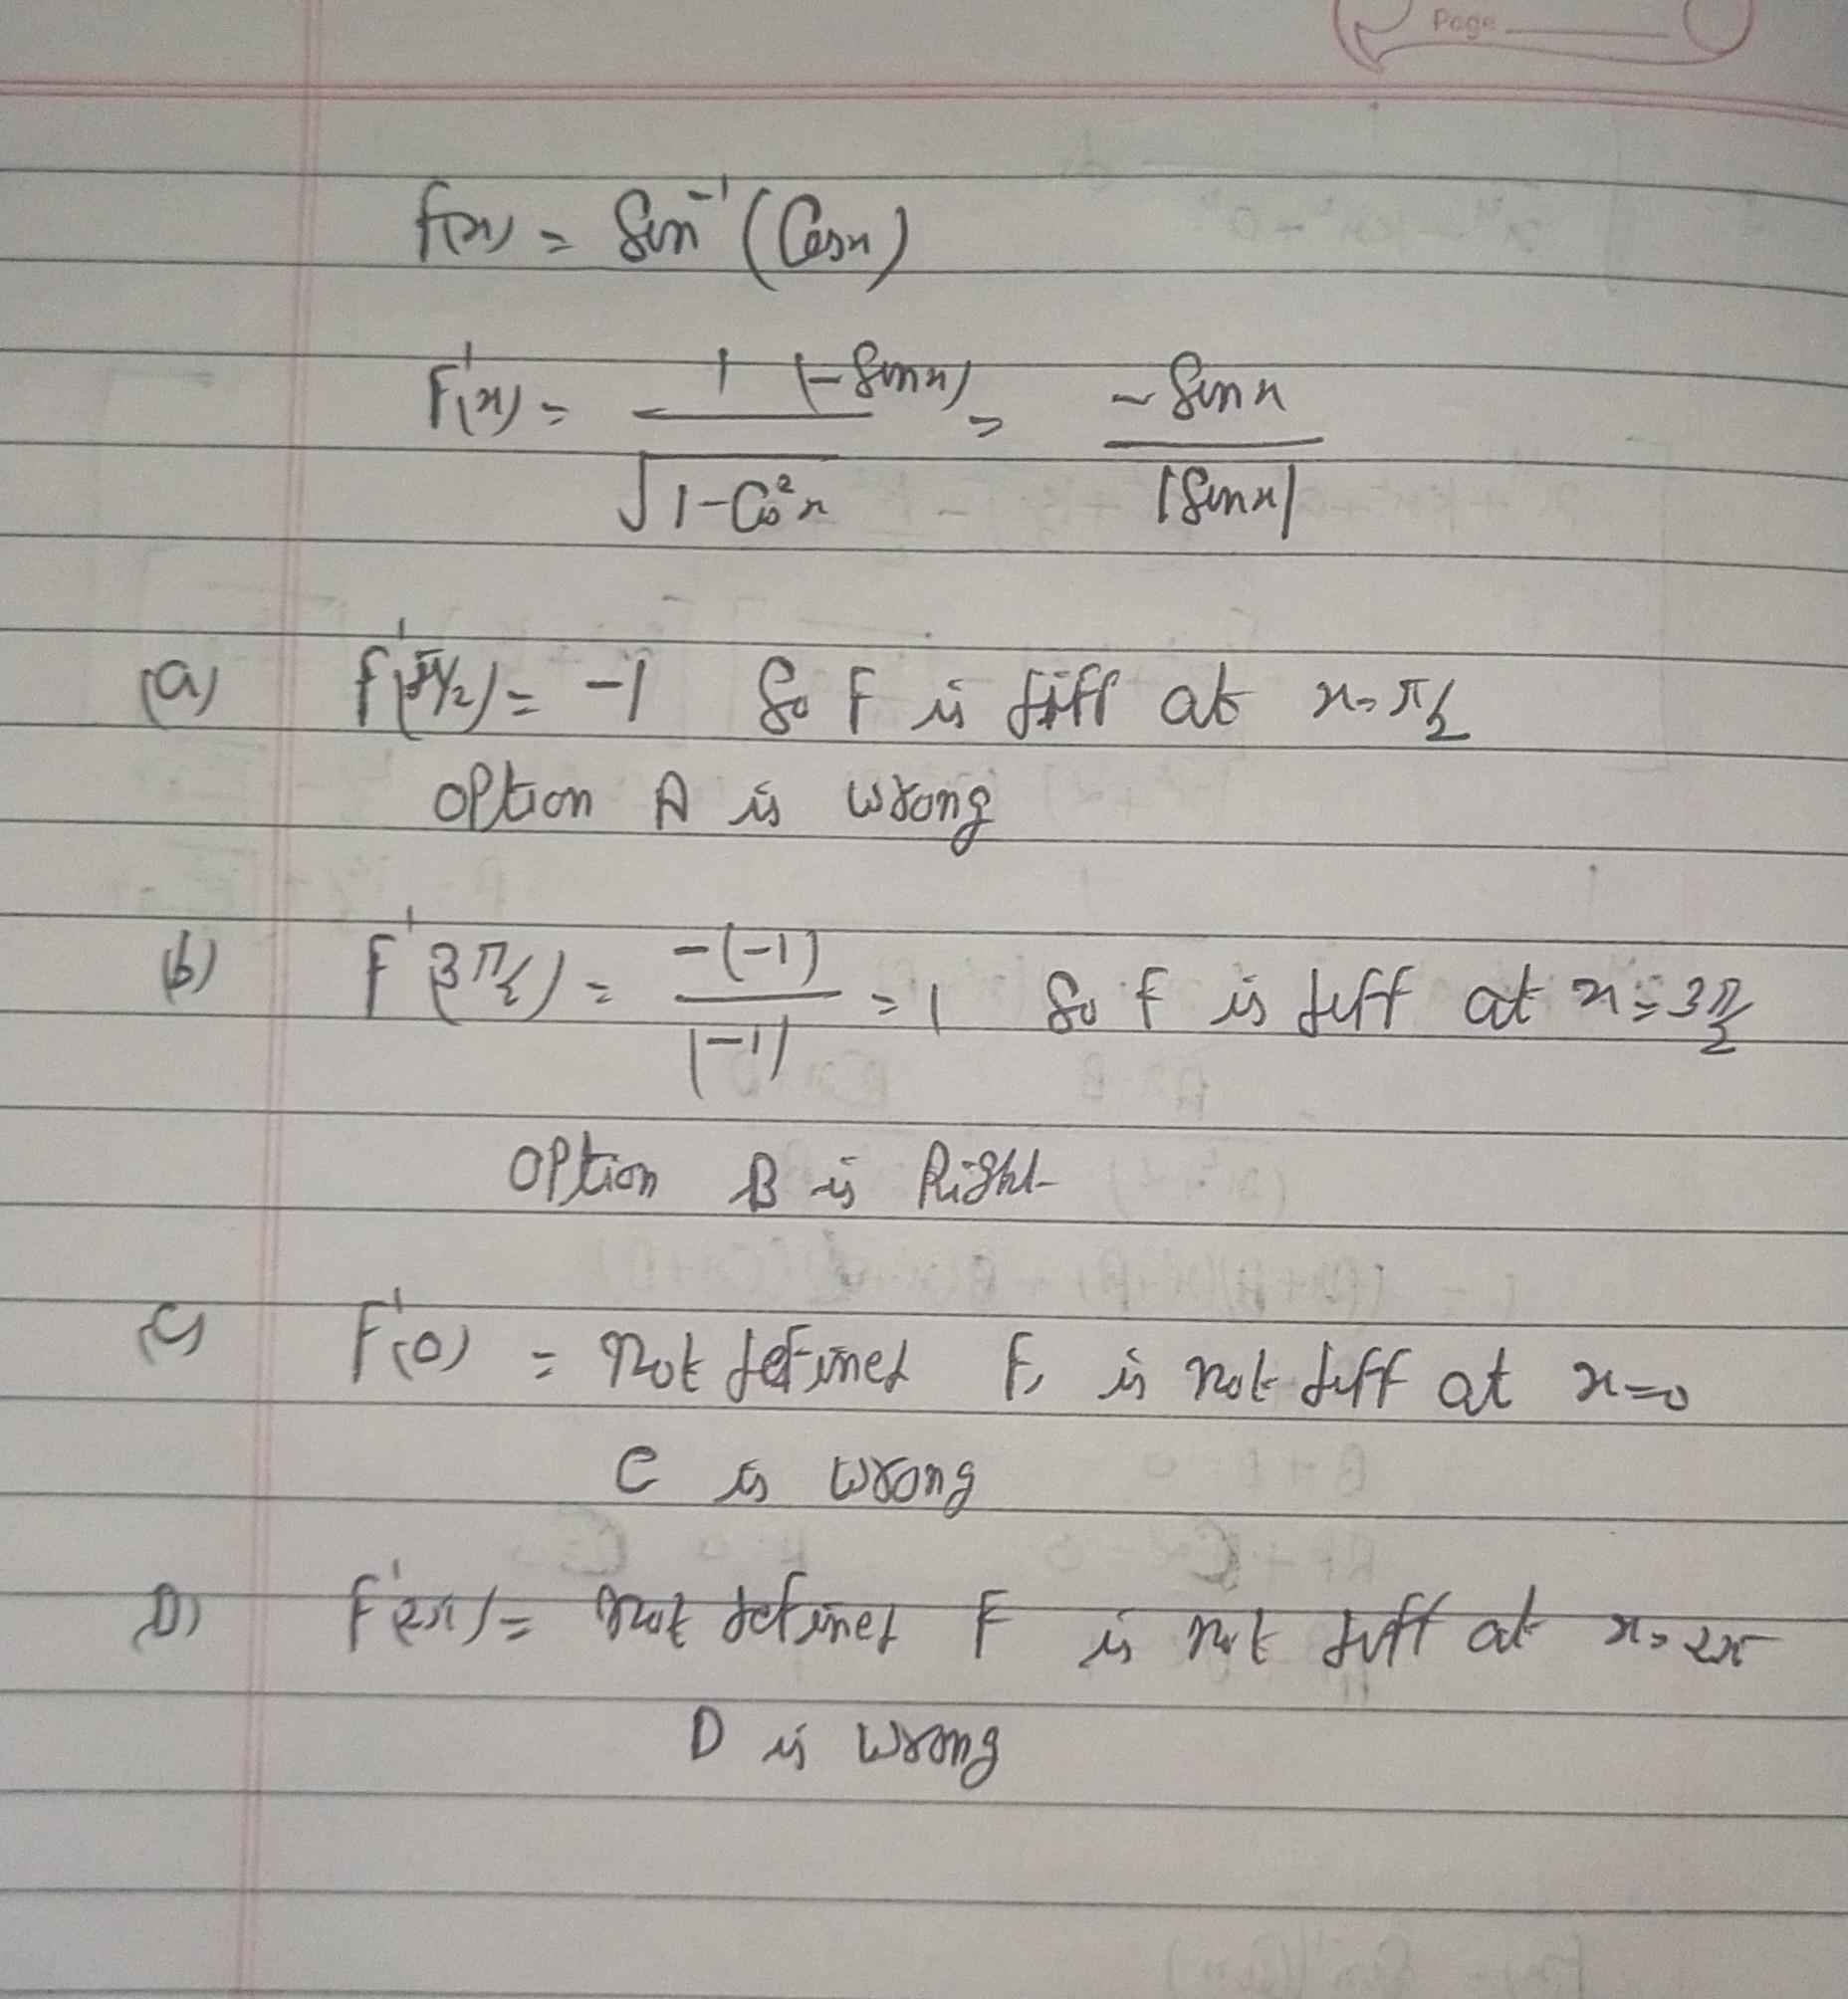 Page
f(x) = Sin⁻¹ (Cosx)
F'(x) = 1 (-Sinx) / √1-Cos²x = -Sinx / |Sinx|
(a) f'(π/2) = -1 So F is diff at x=π/2
option A is wrong
(b) F'(3π/2) = -(-1) / |-1| = 1 So f is diff at x=3π/2
option B is Right
(c) F'(0) = Not defined F, is not diff at x=0
C is wrong
D) F'(2π) = Not defined F is not diff at x=2π
D is wrong